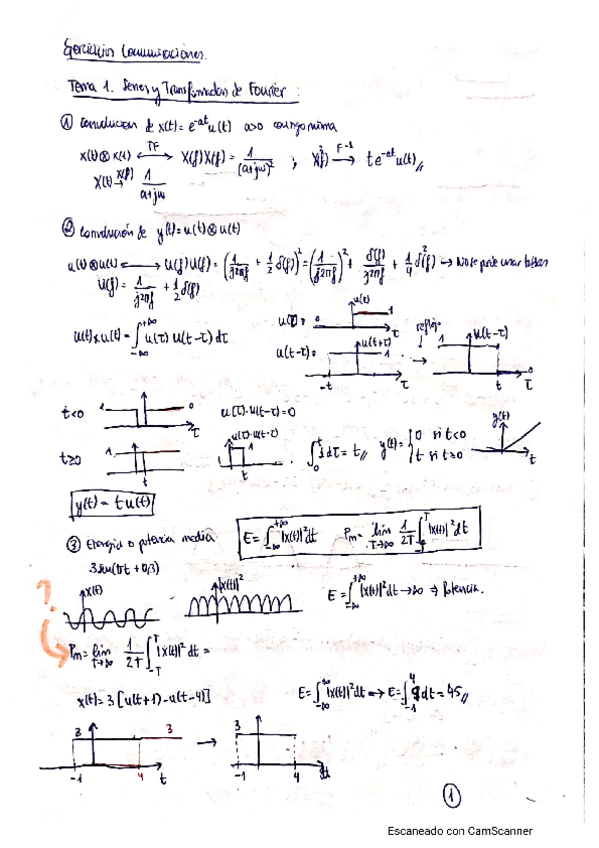 Ejercicios Comunicaciones.
Tema 1. Series y Transformadas de Fourier:
① Convolucion de x(t) = e^-at u(t) a>0 consigo misma
x(t) ⊗ x(t) ⟷TF X(f) X(f) = 1/(a+jω)² ; X²(f) →F⁻¹ t e^-at u(t)
x(t) → X(f) 1/(a+jω)
② Convolución de y(t) = u(t) ⊗ u(t)
u(t) ⊗ u(t) ⟷ U(f) U(f) = (1/j2πf + 1/2 δ(f))² = (1/j2πf)² + δ(f)/j2πf + 1/4 δ²(f) → No se puede usar
U(f) = 1/j2πf + 1/2 δ(f)
u(t) * u(t) = ∫_-∞^+∞ u(τ) u(t-τ) dτ
u(τ) = 0 u(t) 1 τ
u(t-τ) = u(t+τ) 1 -t τ → reflejo 1 u(t-τ) 0 t τ
t<0 1 0 τ u(τ)·u(t-τ) = 0
t≥0 1 τ u(τ)·u(t-τ) 1 t ∫_0^t 1 dτ = t y(t) = { 0 si t<0 y(t)
t si t≥0 t
y(t) = t u(t)
③ Energía o potencia media E = ∫_-∞^+∞ |x(t)|² dt Pm = lim T→∞ 1/2T ∫_-T^T |x(t)|² dt
? x(t) |x(t)|² E = ∫_-∞^+∞ |x(t)|² dt → ∞ ⇒ Potencia.
Pm = lim T→∞ 1/2T ∫_-T^T |x(t)|² dt =
x(t) = 3 [u(t+1) - u(t-4)] E = ∫_-∞^∞ |x(t)|² dt → E = ∫_-1^4 9 dt = 45
3 3 -1 4 t → 3 -1 4 t
①
Escaneado con CamScanner